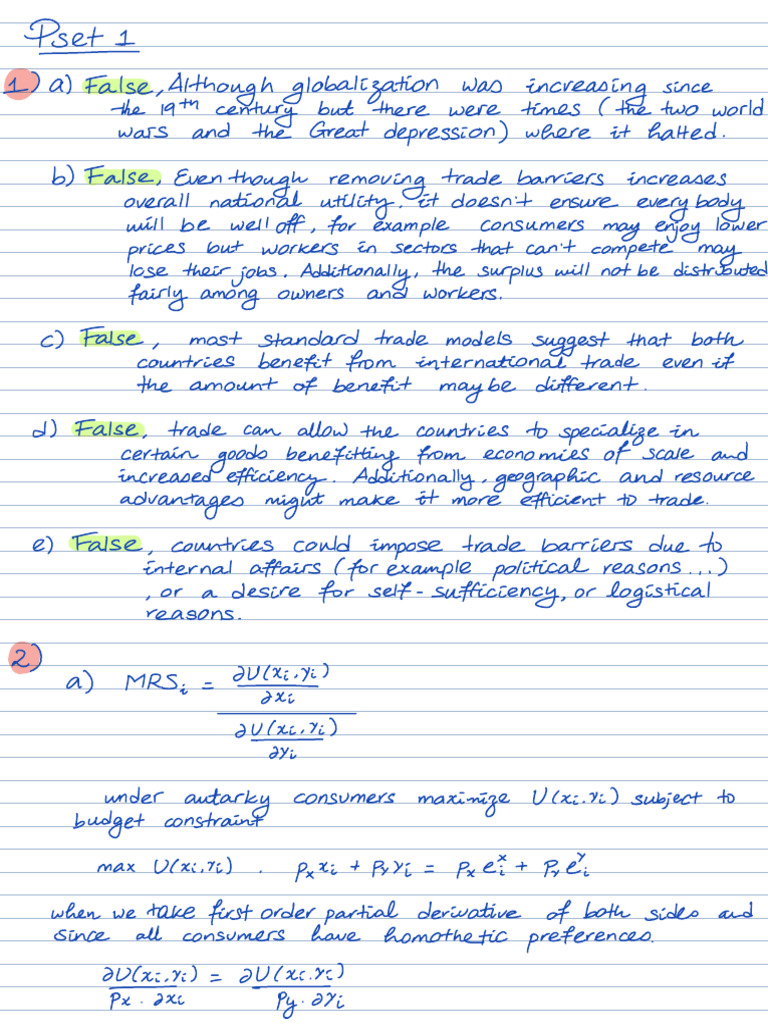 Pset 1
1) a) False, Although globalization was increasing since
the 19th century but there were times (the two world
wars and the Great depression) where it halted.
b) False, Even though removing trade barriers increases
overall national utility, it doesn't ensure every body
will be well off, for example consumers may enjoy lower
prices but workers in sectors that can't compete may
lose their jobs. Additionally, the surplus will not be distributed
fairly among owners and workers.
c) False, most standard trade models suggest that both
countries benefit from international trade even if
the amount of benefit maybe different.
d) False, trade can allow the countries to specialize in
certain goods benefitting from economies of scale and
increased efficiency. Additionally, geographic and resource
advantages might make it more efficient to trade.
e) False, countries could impose trade barriers due to
internal affairs (for example political reasons...)
, or a desire for self-sufficiency, or logistical
reasons.
2)
a) MRSᵢ = (∂U(xᵢ,yᵢ)/∂xᵢ) / (∂U(xᵢ,yᵢ)/∂yᵢ)
under autarky consumers maximize U(xᵢ,yᵢ) subject to
budget constraint
max U(xᵢ,yᵢ) . Pₓxᵢ + Pᵧyᵢ = Pₓeᵢˣ + Pᵧeᵢʸ
when we take first order partial derivative of both sides and
since all consumers have homothetic preferences.
∂U(xᵢ,yᵢ)/(Px · ∂xᵢ) = ∂U(xᵢ,yᵢ)/(Py · ∂yᵢ)